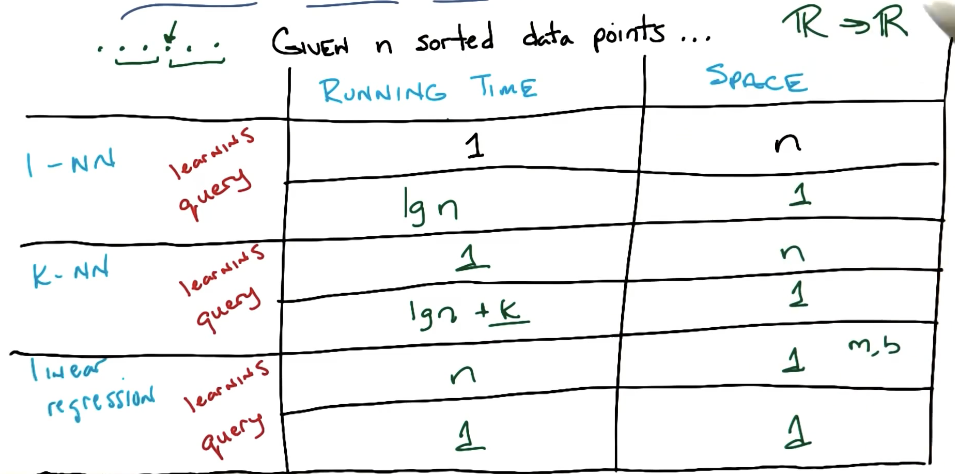 GIVEN n sorted data points ... ℝ → ℝ
RUNNING TIME SPACE
1-NN learning 1 n
query lg n 1
K-NN learning 1 n
query lg n + k 1
linear regression learning n 1 m,b
query 1 1